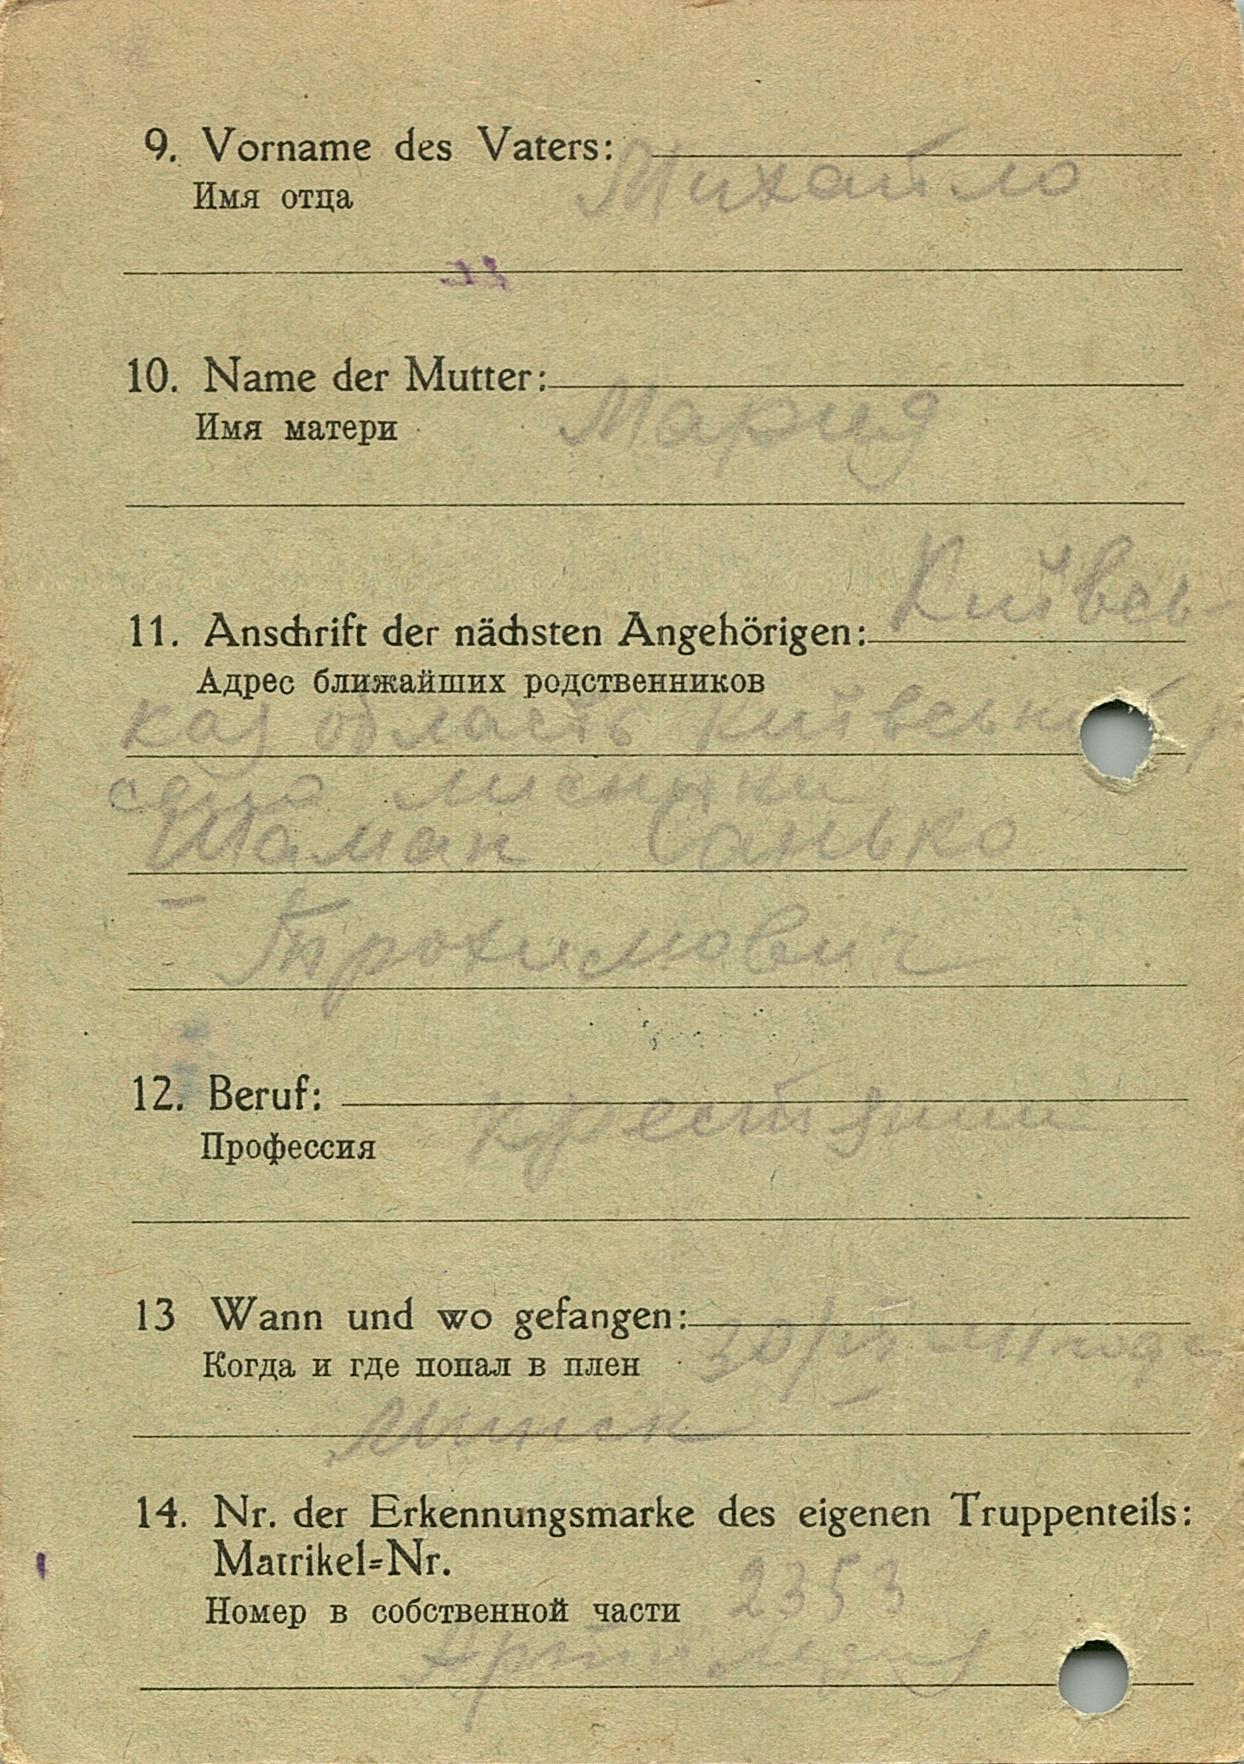 9. Vorname des Vaters:
Имя отца Михайло
10. Name der Mutter:
Имя матери Мария
Київсь-
11. Anschrift der nächsten Angehörigen:
Адрес ближайших родственников
кая область Київський р
село лисники
Шаман Санько
Трохимович
12. Beruf:
Профессия крестянин
13 Wann und wo gefangen:
Когда и где попал в плен
Минск
14. Nr. der Erkennungsmarke des eigenen Truppenteils:
Matrikel=Nr.
Номер в собственной части 2353